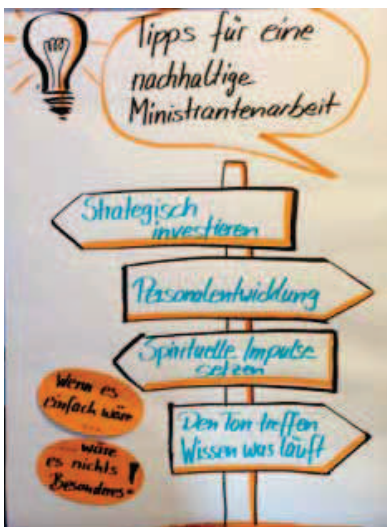 Tipps für eine
nachhaltige
Ministrantenarbeit
Strategisch
investieren
Personalentwicklung
Spirituelle Impulse
setzen
Den Ton treffen
Wissen was läuft
Wenn es
einfach wäre
...
... wäre
es nichts
Besonderes!